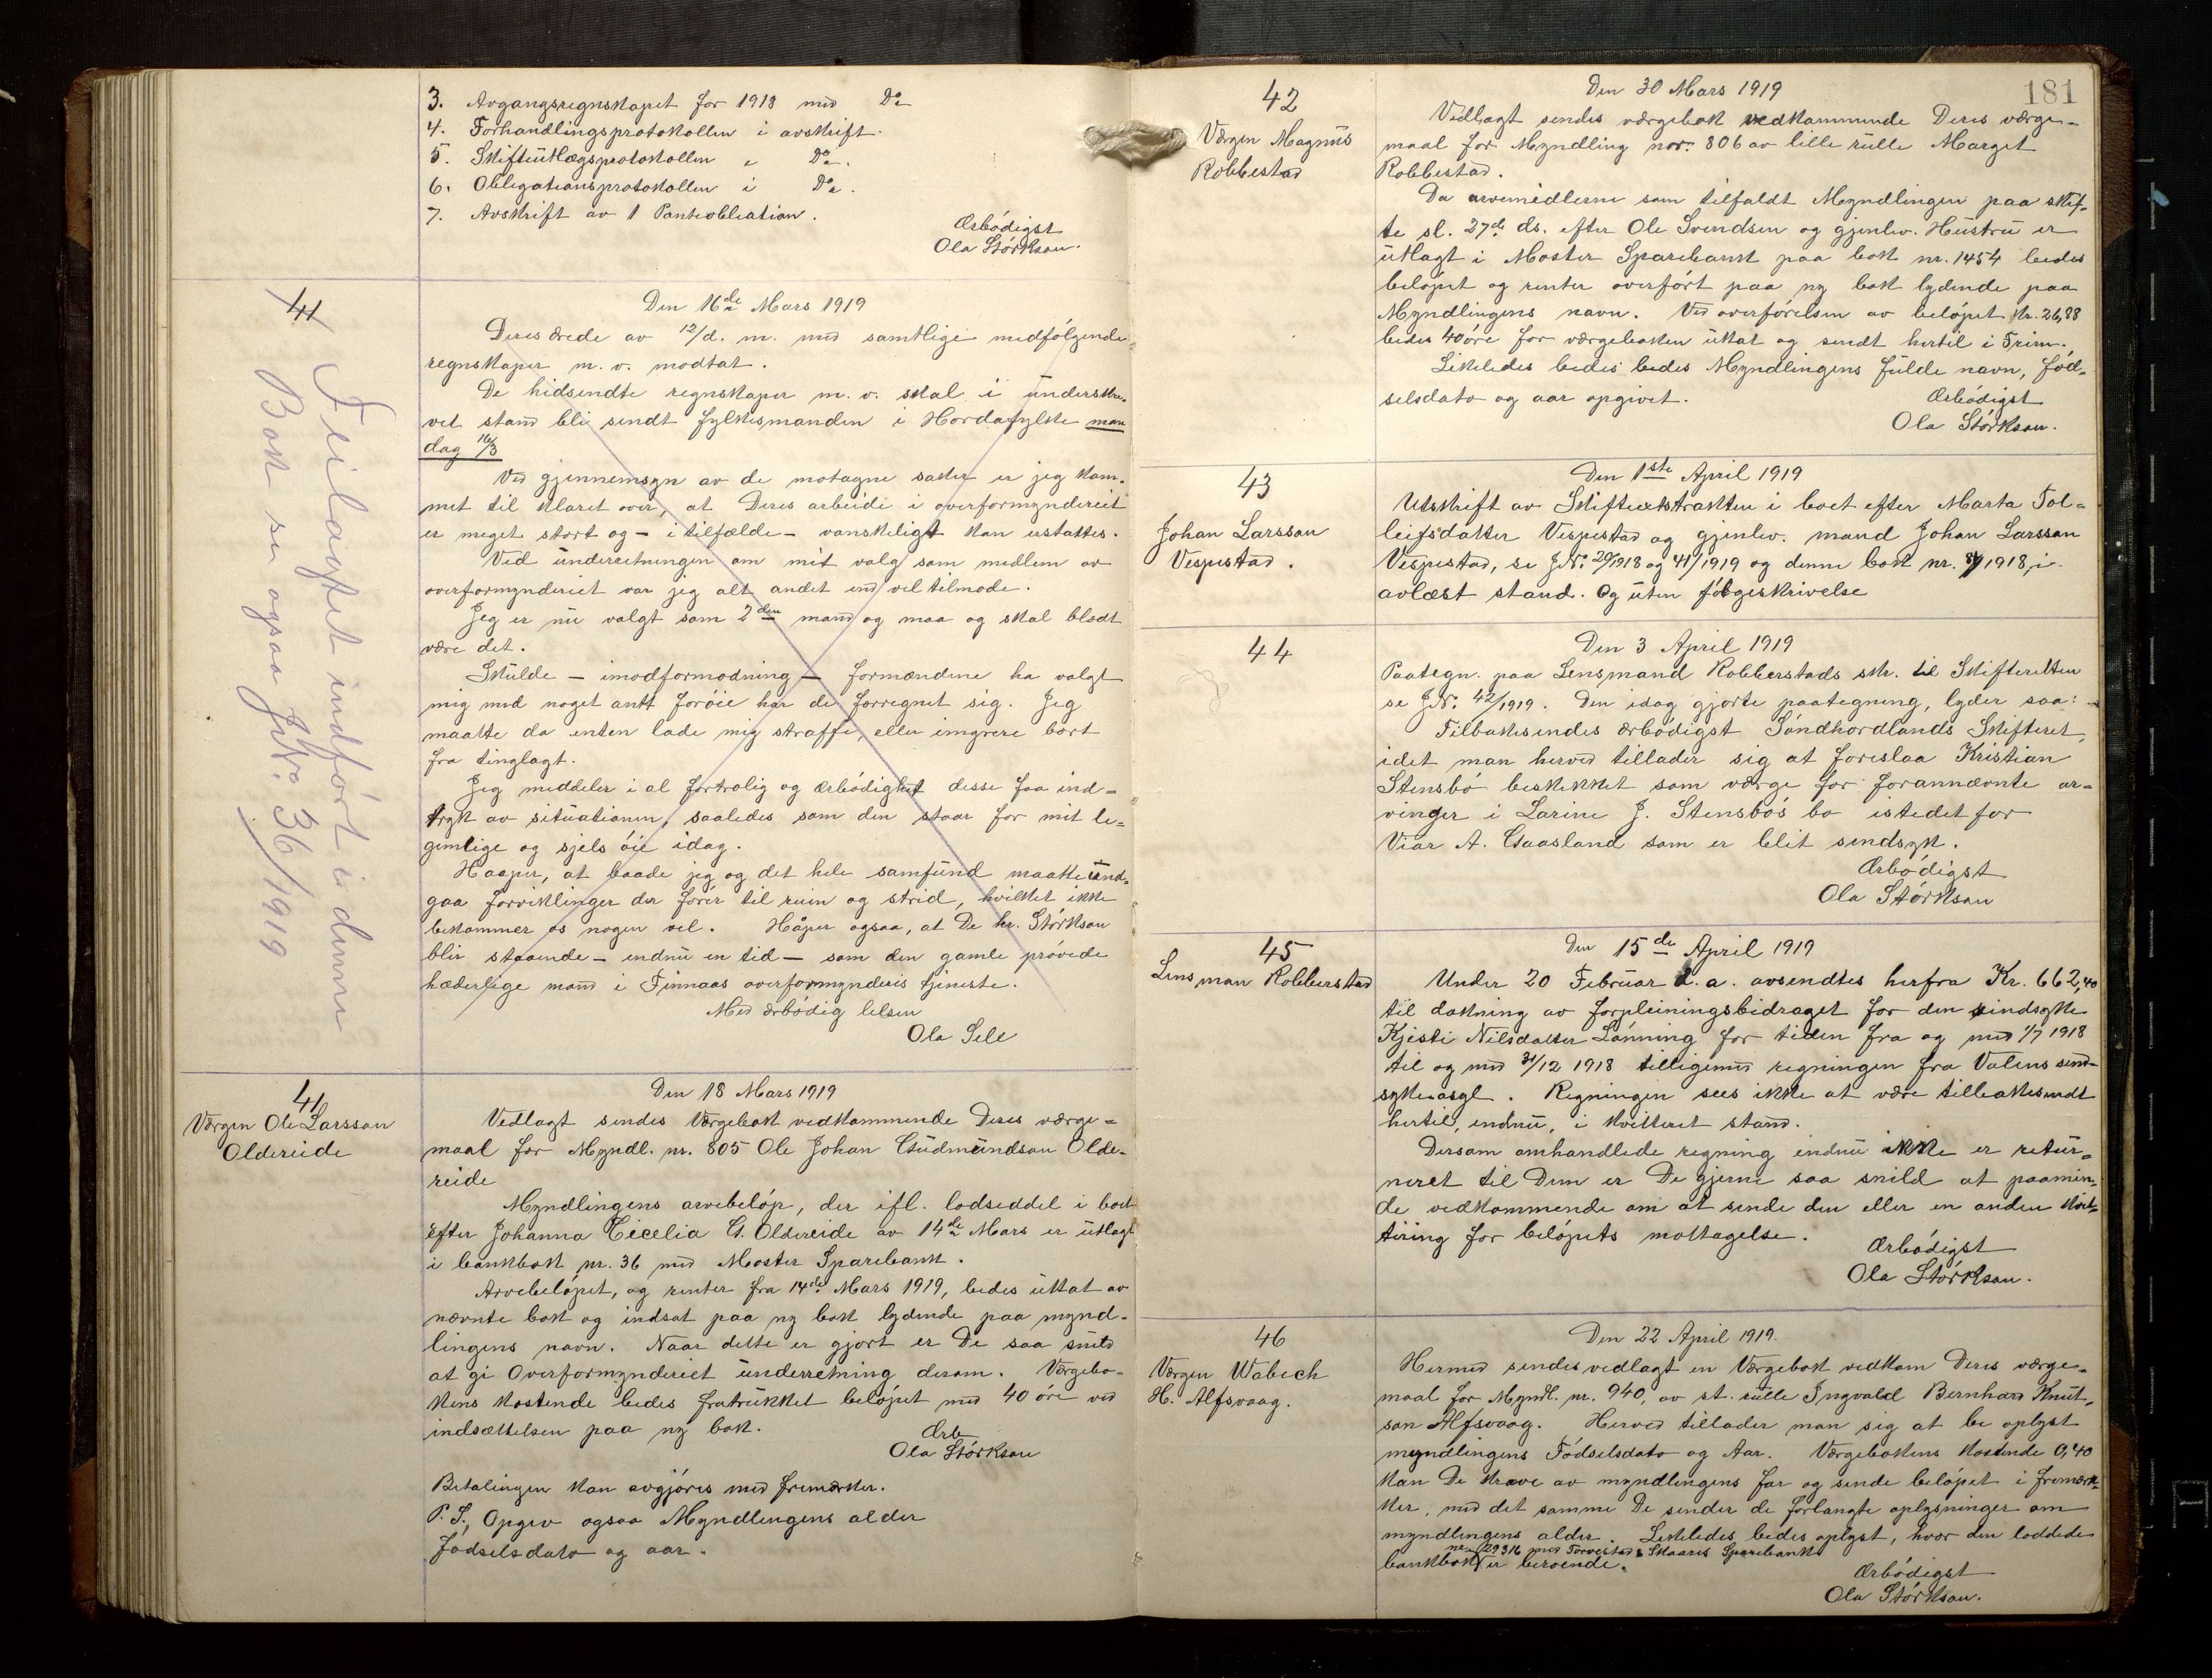 3. Avgangsregnskapet for 1918 med Do
4. Forhandlingsprotokollen i avskrift.
5. Skifteutlægsprotokollen i Do.
6. Obligationsprotokollen i Do.
7. Avskrift av 1 Panteobliation.
Ærbødigst
Ola Størkson.
41
Feilagtet indført i denne
Bok se ogsaa J.No. 36/1919
Den 16de Mars 1919
Deres ærede av 12/d. m. med samtlige medfølgende
regnskaper m. v. modtat.
De hidsendte regnskaper m. v. skal i underskre-
vet stand bli sendt fylkesmanden i Hordafylke man
dag 16/3
Ved gjennemsyn av de motagne saker er jeg kom-
met til klaret over, at Deres arbeide i overformynderiet
er meget stort og - i tilfælde - vanskeligt kan erstattes.
Ved underretningen om mit valg som medlem av
overformynderiet var jeg alt andet end vel tilmode.
Jeg er nu valgt som 2den mand og maa og skal blodt
være det.
Skulde - imodformodning - formændene ha valgt
mig med noget antt forøie har de forregnet sig. Jeg
maatte da enten lade mig straffe, eller imgrere bort
fra tinglagt.
Jeg meddeler i al fortrolig og ærbødighet desse faa ind-
tryk av situationen, saaledes som den staar for mit le-
gemlige og sjels øie idag.
Haaper, at baade jeg og det hele samfund maatte und-
gaa forviklinger der fører til ruin og strid, hvilket ikke
bekommer os nogen vel. Håper ogsaa, at De hr. Størkson
blir staaende - endnu en tid - som den gamle prøvede
hæderlige mand i Finnaas overformynderis tjeneste.
Med ærbødig hilsen
Ola Sele
41
Værgen Ole Larsson
Oldereide
Den 18 Mars 1919
Vedlagt sendes Værgebok vedkommende Deres værge-
maal for Myndl. nr. 805 Ole Johan Gudmundson Olde-
reide
Myndlingens arvebeløp, der ifl. lodseddel i boet
efter Johanna Cicelia G. Oldereide av 14de Mars er utlagt
i bankbok nr. 36 med Moster Sparebank.
Arvebeløpet, og renter fra 14de Mars 1919, bedes uttat av
nævnte bok og indsat paa ny bok lydende paa mynd-
lingens navn. Naar dette er gjort er De saa snild
at gi Overformynderiet underretning derom. Værgebo-
kens kostende bedes fratrukket beløpet med 40 øre ved
indsættelsen paa ny bok.
Ærb
Ola Størkson
Betalingen kan avgjøres med frimærker.
P. S., Opgiv ogsaa Myndlingens alder
Fødselsdato og aar.
181
42
Værgen Magnus
Robbestad
Den 30 Mars 1919
Vedlagt sendes værgebok vedkommende Deres værge-
maal for Myndling nor. 806 av lille rulle Marget
Robbestad.
Da arvemidlerne som tilfaldt Myndlingen paa skif-
te sl. 27de ds. efter Ole Svendsen og gjenlev. Hustru er
utlagt i Moster Sparebank paa bok nr. 1454 bedes
beløpet og renter overført paa ny bok lydende paa
Myndlingens navn. Ved overførelsen av beløpet kr. 26,88
bedes 40 øre for værgeboken uttat og sendt hertil i Frim.
Likeledes bedes bedes Myndlingens fulde navn, fød-
selsdato og aar opgivet.
Ærbødigst
Ola Størkson.
43
Johan Larsson
Vespestad.
Den 1ste April 1919
Utskrift av Skifteextrakten i boet efter Marta Tol-
leifsdatter Vespestad og gjenlev. mand Johan Larsson
Vespestad, se J.No. 20/1918 og 41/1919 og denne bok nr. 1918, i
avlæst stand. Og uten følgeskrivelse
44
Den 3 April 1919
Paategn. paa Lensmand Robberstads skr. til Skifteretten
se J.N. 42/1919. Den idag gjorte paategning, lyder saa:
Tilbakesendes ærbødigst Søndhordlands Skifteret,
idet man herved tillader sig at foreslaa Kristian
Stensbø beskikket som værge for forannævnte ar-
vinger i Larine J. Stensbøs bo istedetfor
Viar A. Gaasland som er blit sindsyk.
Ærbødigst
Ola Størkson
45
Lensman Robberstad
Den 15de April 1919
Under 20 Februar d. a. avsendtes herfra Kr. 662,40
til dækning av forpleiningsbidraget for den sindsyke
Kjesti Nilsdatter Lønning for tiden fra og med 1/7 1918
til og med 31/12 1918 tilligemed regningen fra Valens sind-
sykeasyl. Regningen sees ikke at være tilbakesendt
hertil, endnu, i kvitteret stand.
Dersom omhandlede regning endnu ikke er retur-
neret til Dem er De gjerne saa snild at paamin-
de vedkommende om at sende den eller en anden kvit-
tering for beløpets mottagelse.
Ærbødigst
Ola Størkson.
46
Værgen Wabech
H. Alfsvaag.
Den 22 April 1919.
Hermed sendes vedlagt en Værgebok vedkom Deres værge-
maal for Myndl. nr. 940, av st. rulle Ingvald Bernhard Knut-
son Alfsvaag. Herved tillader man sig at be oplyst
myndlingens Fødselsdato og Aar. Værgebokens kostende 0,40
kan De kræve av myndlingens far og sende beløpet i frimær-
ker, med det samme De sender de forlangte oplysninger om
myndlingens alder. Likeledes bedes oplyst, hvor den loddede
nr. 29316 med Torvestad & Skaares Sparebank
bankbok er beroende.
Ærbødigst
Ola Størkson.